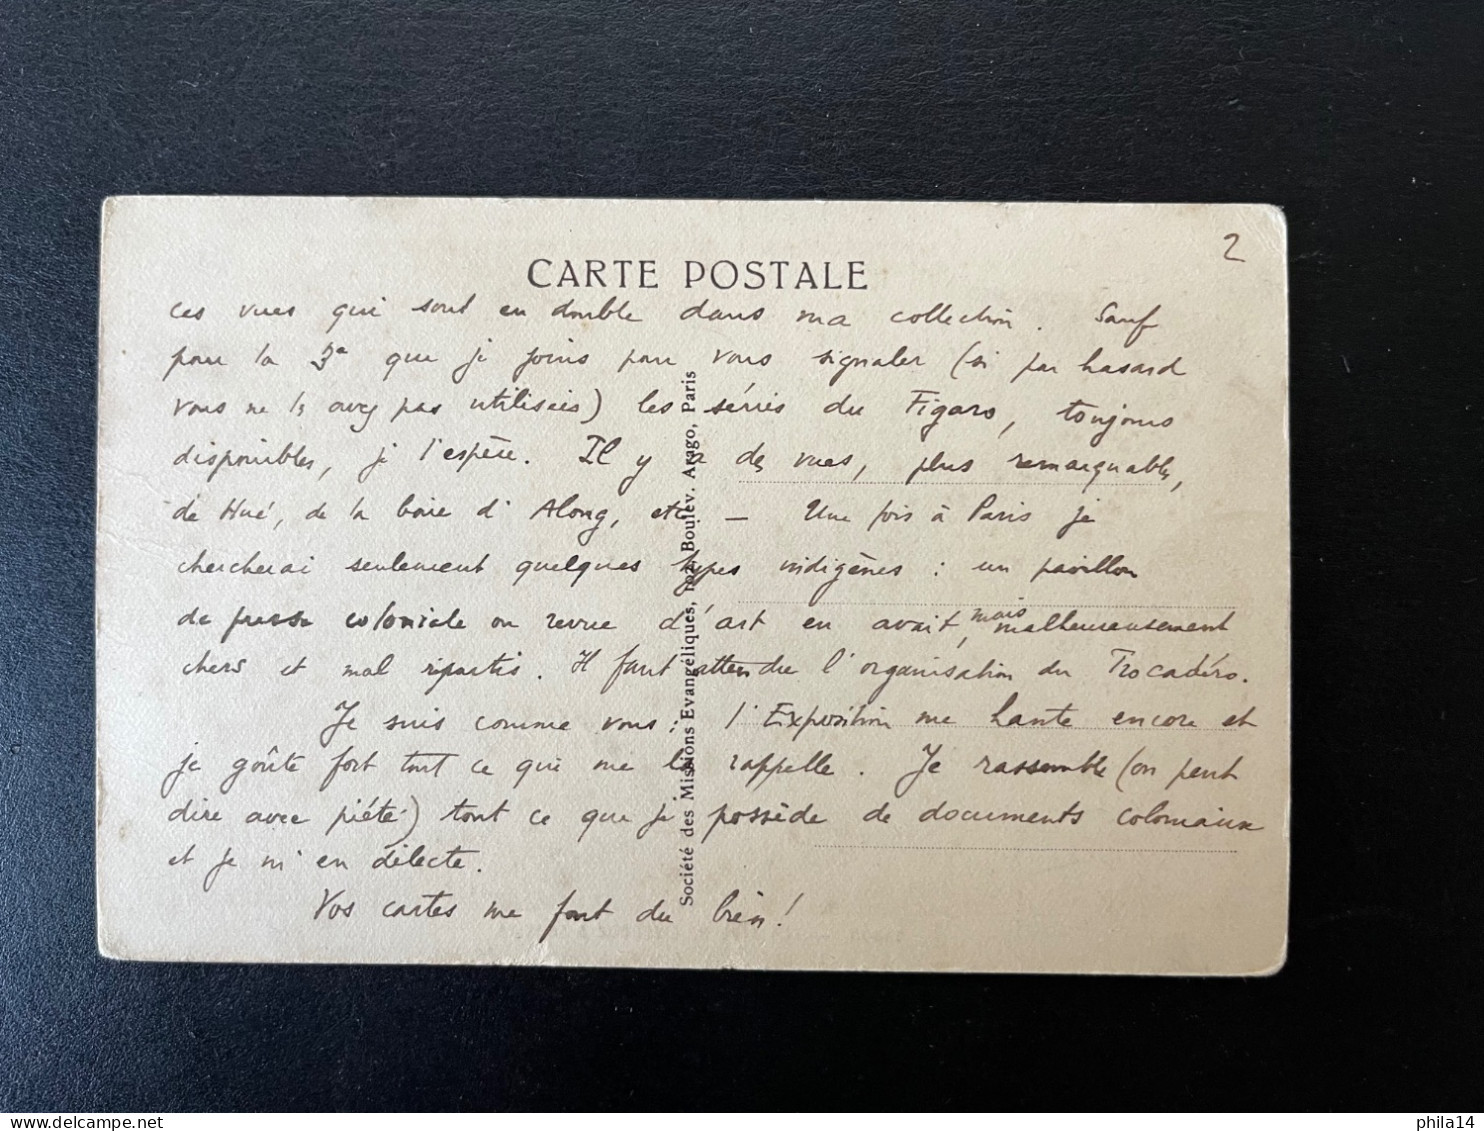 2
CARTE POSTALE
ces vues qui sont en double dans ma collection. Sauf
pour la 3e que je joins pour vous signaler (si par hasard
vous ne ls avez pas utilisées) les séries du Figaro, toujours
disponibles, je l'espère. Il y a des vues, plus remarquables,
de Hué, de la baie d'Along, etc. — Une fois à Paris je
chercherai seulement quelques types indigènes : un pavillon
de presse coloniale ou revue d'art en avait, mais malheureusement
chers et mal répartis. Il faut attendre l'organisation du Trocadéro.
Je suis comme vous : l'Exposition me hante encore et
je goûte fort tout ce qui me la rappelle. Je rassemble (on peut
dire avec piété) tout ce que je possède de documents coloniaux
et je m'en délecte.
Vos cartes me font du bien !
Société des Missions Evangéliques, Boulev. Arago, Paris
phila14